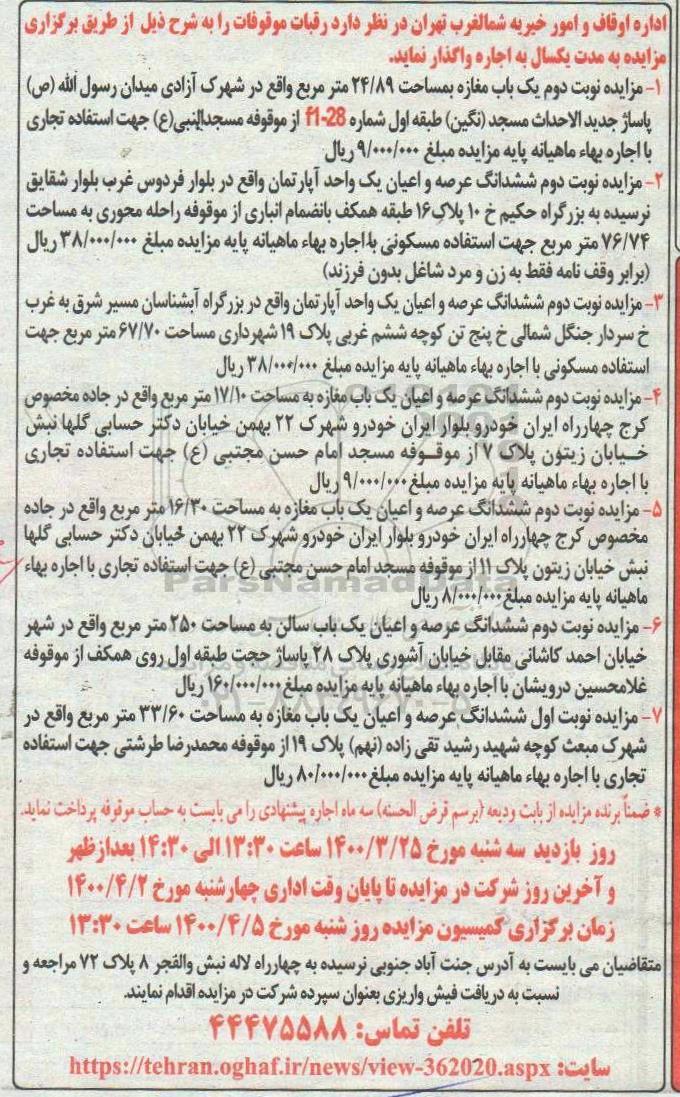 اداره اوقاف و امور خیریه شمالغرب تهران در نظر دارد رقبات موقوفات را به شرح ذیل از طریق برگزاری
مزایده به مدت یکسال به اجاره واگذار نماید.
۱- مزایده نوبت دوم یک باب مغازه بمساحت ۲۴/۸۹ متر مربع واقع در شهرک آزادی میدان رسول الله (ص)
پاساژ جدید الاحداث مسجد (نگین) طبقه اول شماره f1-28 از موقوفه مسجدالنبی(ع) جهت استفاده تجاری
با اجاره بهاء ماهیانه پایه مزایده مبلغ ۹/۰۰۰/۰۰۰ ریال
۲- مزایده نوبت دوم ششدانگ عرصه و اعیان یک واحد آپارتمان واقع در بلوار فردوس غرب بلوار شقایق
نرسیده به بزرگراه حکیم خ ۱۰ پلاک۱۶ طبقه همکف بانضمام انباری از موقوفه راحله محوری به مساحت
۷۶/۷۴ متر مربع جهت استفاده مسکونی با اجاره بهاء ماهیانه پایه مزایده مبلغ ۳۸/۰۰۰/۰۰۰ ریال
(برابر وقف نامه فقط به زن و مرد شاغل بدون فرزند)
۳- مزایده نوبت دوم ششدانگ عرصه و اعیان یک واحد آپارتمان واقع در بزرگراه آبشناسان مسیر شرق به غرب
خ سردار جنگل شمالی خ پنج تن کوچه ششم غربی پلاک ۱۹ شهرداری مساحت ۶۷/۷۰ متر مربع جهت
استفاده مسکونی با اجاره بهاء ماهیانه پایه مزایده مبلغ ۳۸/۰۰۰/۰۰۰ ریال
۴- مزایده نوبت دوم ششدانگ عرصه و اعیان یک باب مغازه به مساحت ۱۷/۱۰ متر مربع واقع در جاده مخصوص
کرج چهارراه ایران خودرو بلوار ایران خودرو شهرک ۲۲ بهمن خیابان دکتر حسابی گلها نبش
خیابان زیتون پلاک ۷ از موقوفه مسجد امام حسن مجتبی (ع) جهت استفاده تجاری
با اجاره بهاء ماهیانه پایه مزایده مبلغ ۹/۰۰۰/۰۰۰ ریال
۵- مزایده نوبت دوم ششدانگ عرصه و اعیان یک باب مغازه به مساحت ۱۶/۳۰ متر مربع واقع در جاده
مخصوص کرج چهارراه ایران خودرو بلوار ایران خودرو شهرک ۲۲ بهمن خیابان دکتر حسابی گلها
نبش خیابان زیتون پلاک ۱۱ از موقوفه مسجد امام حسن مجتبی (ع) جهت استفاده تجاری با اجاره بهاء
ماهیانه پایه مزایده مبلغ ۸/۰۰۰/۰۰۰ ریال
۶- مزایده نوبت دوم ششدانگ عرصه و اعیان یک باب سالن به مساحت ۲۵۰ متر مربع واقع در شهر
خیابان احمد کاشانی مقابل خیابان آشوری پلاک ۲۸ پاساژ حجت طبقه اول روی همکف از موقوفه
غلامحسین درویشان با اجاره بهاء ماهیانه پایه مزایده مبلغ ۱۶۰/۰۰۰/۰۰۰ ریال
۷- مزایده نوبت اول ششدانگ عرصه و اعیان یک باب مغازه به مساحت ۳۳/۶۰ متر مربع واقع در
شهرک مبعث کوچه شهید رشید تقی زاده (نهم) پلاک ۱۹ از موقوفه محمدرضا طرشتی جهت استفاده
تجاری با اجاره بهاء ماهیانه پایه مزایده مبلغ ۸۰/۰۰۰/۰۰۰ ریال
* ضمناً برنده مزایده از بابت ودیعه (برسم قرض الحسنه) سه ماه اجاره پیشنهادی را می بایست به حساب موقوفه پرداخت نماید.
روز بازدید سه شنبه مورخ ۱۴۰۰/۳/۲۵ ساعت ۱۳:۳۰ الی ۱۴:۳۰ بعدازظهر
و آخرین روز شرکت در مزایده تا پایان وقت اداری چهارشنبه مورخ ۱۴۰۰/۴/۲
زمان برگزاری کمیسیون مزایده روز شنبه مورخ ۱۴۰۰/۴/۵ ساعت ۱۳:۳۰
متقاضیان می بایست به آدرس جنت آباد جنوبی نرسیده به چهارراه لاله نبش والفجر ۸ پلاک ۷۲ مراجعه و
نسبت به دریافت فیش واریزی بعنوان سپرده شرکت در مزایده اقدام نمایند.
تلفن تماس: ۴۴۴۷۵۵۸۸
سایت: https://tehran.oghaf.ir/news/view-362020.aspx
ParsNamadData